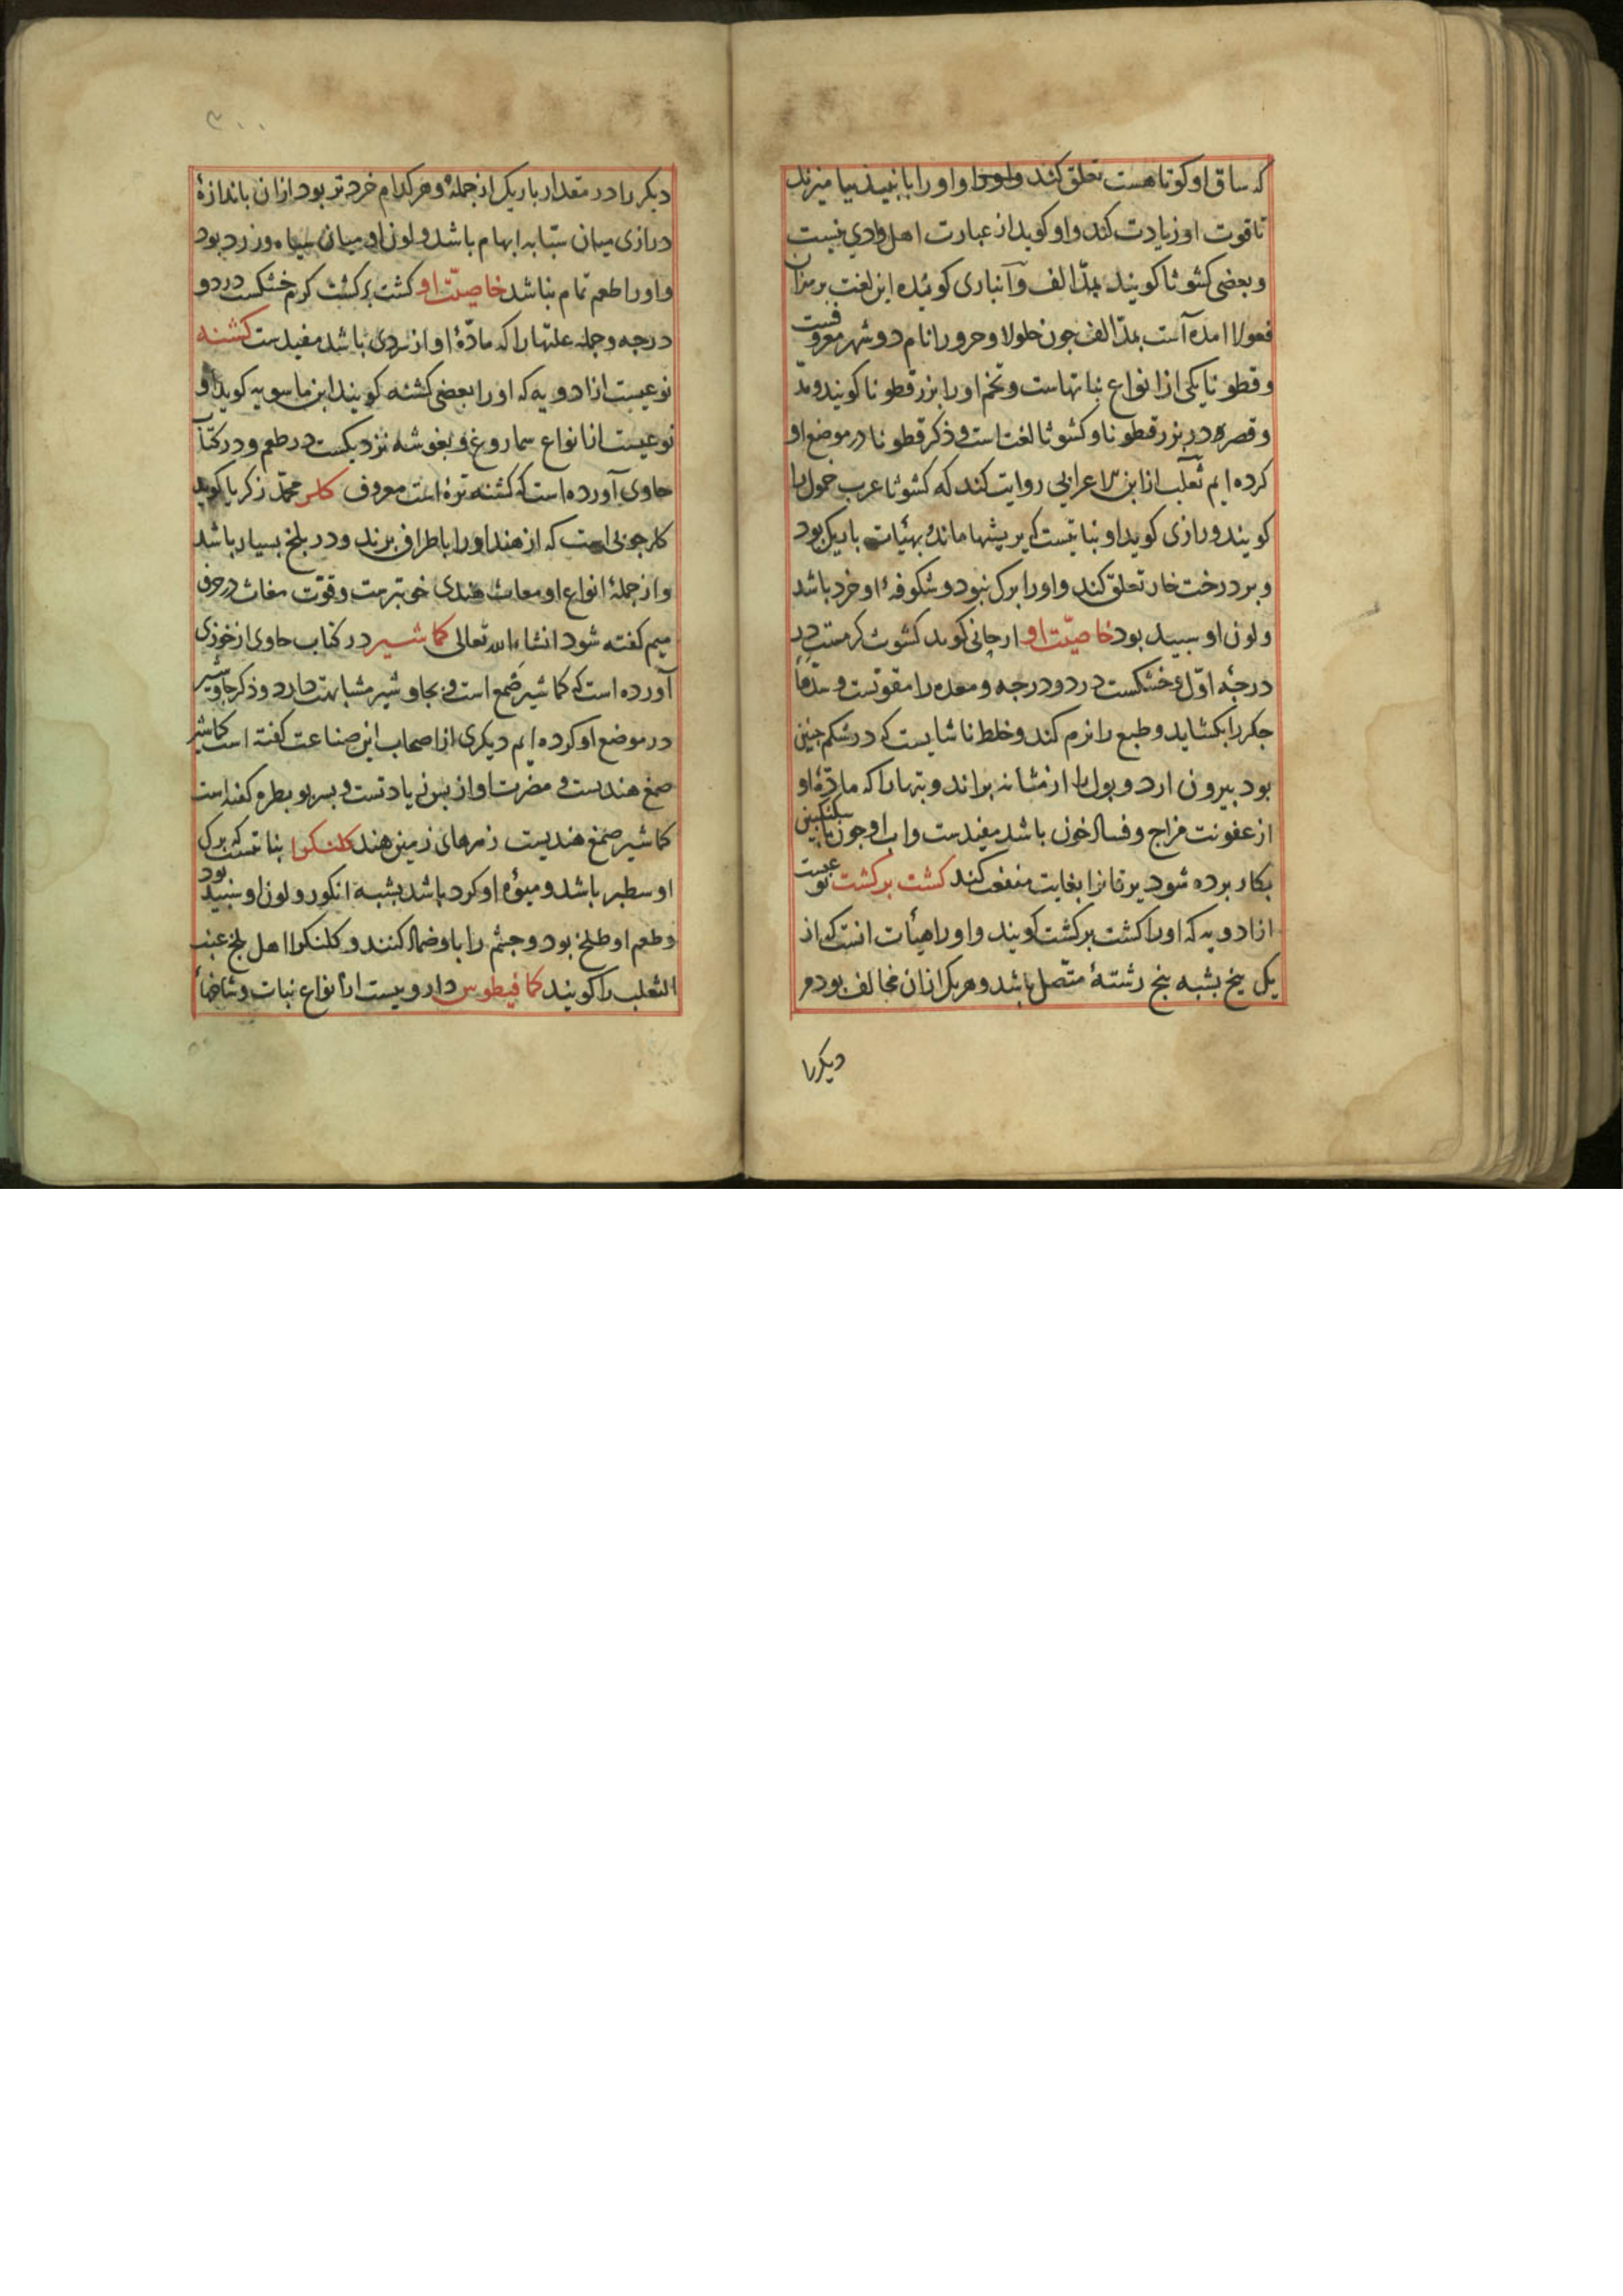 که ساق او کوتاهست تعلق کند و او را با نبیذ بیامیزند
تا قوت او زیادت کند و او کوید از عبارت اهل وادی نیست
و بعضی کشوثا کویند بمدّ الف و انباری کوینده این لغت بر میزان
فعولا امده است بمدّ الف جون حلولا و حرورا نام دو شهر معروفست
و قطونا یکی از انواع نباتهاست و تخم او را بزر قطونا کویند و مدّ
و قصر در بزر قطونا و کشوثا لغت است و ذکر قطونا در موضع او
کرده ایم ثعلب از ابن الاعرابی روایت کند که کشوثا عرب خمول را
کویند و رازی کوید او نباتیست که بریشها ماند بهیئات باریک بود
و بر درخت خار تعلق کند و او را برک نبود و شکوفهٔ او خرد باشد
و لون او سبید بود خاصیّت او ارجانی کوید کشوث کرمست در
درجهٔ اوّل و خشکست در دو درجه و معده را مقویست و سدّهاء
جکر را بکشاید و طبع را نرم کند و خلط ناشایست که در شکم جنین
بود بیرون ارد و بول را از مثانه براند و تبها را که مادّهٔ او
از عفونت مزاج و فساد خون باشد مفیدست و اب او جون با سکنکبین
بکار برده شود یرقانرا بغایت منفعت کند کشت برکشت نوعیست
از ادویه که او را کشت برکشت کویند و او را هیأت انست که از
یک بیخ بشبه بنج رشتهٔ متّصل باشد و هر یک از ان مخالف بود مر
دیکر را
۳۰۰
دیکر را در مقدار باریک از جمله و هر کدام خردتر بود از ان باندازهٔ
درازی میان سبّابه ابهام باشد و لون او میان سیاه و زرد بود
و او را طعم تمام نباشد خاصیّت او کشت برکشت کرم خشکست در دو
درجه و جمله علتها را که مادّهٔ او از سردی باشد مفیدست کشنه
نوعیست از ادویه که او را بعضی کشنه کویند ابن ماسویه کوید او
نوعیست از انواع سماروغ و بغوشه نزدیکست در طعم و در کتاب
حاوی آورده است که کشنه ترهٔ است معروف کلر محمّد زکریا کوید
کلر جوبی است که از هند او را باطراف برند و در بلخ بسیار باشد
و از جملهٔ انواع او مغاث هندی خوبترست و قوّت مغاث در حرف
میم کفته شود انشاء الله تعالی کماشیر در کتاب حاوی از خوزی
آورده است که کماشیر صمغ است و بجاوشیر مشابهت دارد و ذکر جاوشیر
در موضع او کرده ایم دیکری از اصحاب این صناعت کفته است کماشیر
صمغ هندیست و مضرت او از بس زیادتست و بسر بو بطره کفته است
کماشیر صمغ هندیست زمرهای زمین هند کلنکرا نباتیست که برک
او سطبر باشد و میوهٔ او کرد باشد بشبه انکور و لون او سبید بود
و طعم او طلخ بود و جشم را باو ضماد کنند و کلنکرا اهل بلخ عنب
الثعلب را کویند کمافیطوس داروییست از انواع نبات و شاخهاء